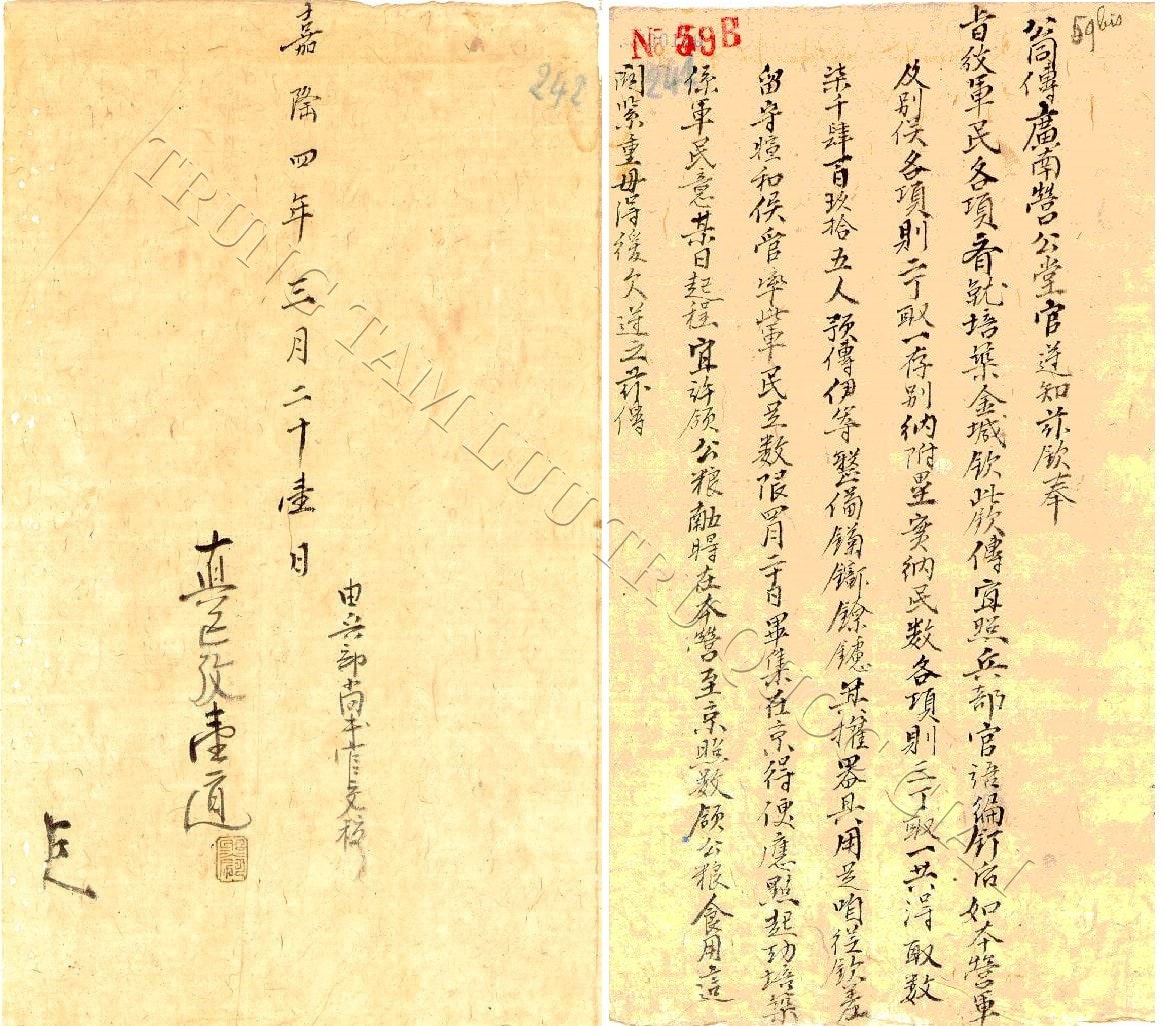 59bis
公同傳廣南營公堂官遵知茲欽奉
旨攷軍民各項斉就培築金城欽此欽傳宜照兵部官語編訂后如本營軍
及別俟各項則二丁取一存別納附壘寔納民数各項則三丁取一共淂取数
柒千肆百玖拾五人預傳伊等整備鐄鎯鍬鐪其擢器具用足咱從欽差
留守瞳和侯管率此軍民足数限四月二十日畢集在京得便應點起功培築
係軍民意某日起程宜許領公粮勈時在本營至京照数領公粮食用這
関紧重毋淂後欠遵之茲傳
№ 59B
241
242
嘉隆四年三月二十壹日
由兵部尚书 文移
壹道
TRUNG TAM LUU TRU QUOC GIA I